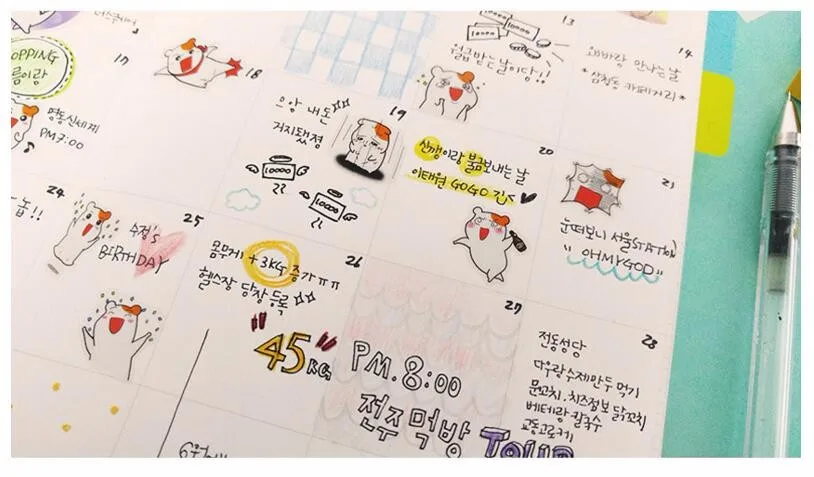 13
월급받는날이당!!
14
오빠랑 만나는날
* 삼청동 카페거리 *
OPPING
17
명동신세계
PM 7:00
18
으앙 내돈
거지됐졍
10000
10000
19
신깽이랑 불금보내는 날
이태원 GOGO
20
21
눈떠보니 서울STATION
"OH MY GOD"
24
25
수정's
BIRTHDAY
몸무게 +3KG 증가ㅠㅠ
헬스장 당장등록
45KG
26
27
PM.8:00
전주먹방 TOUR
28
전동성당
다우랑수제만두 먹기
문꼬치, 치즈점보 닭꼬치
베테랑 칼국수
교동고로케